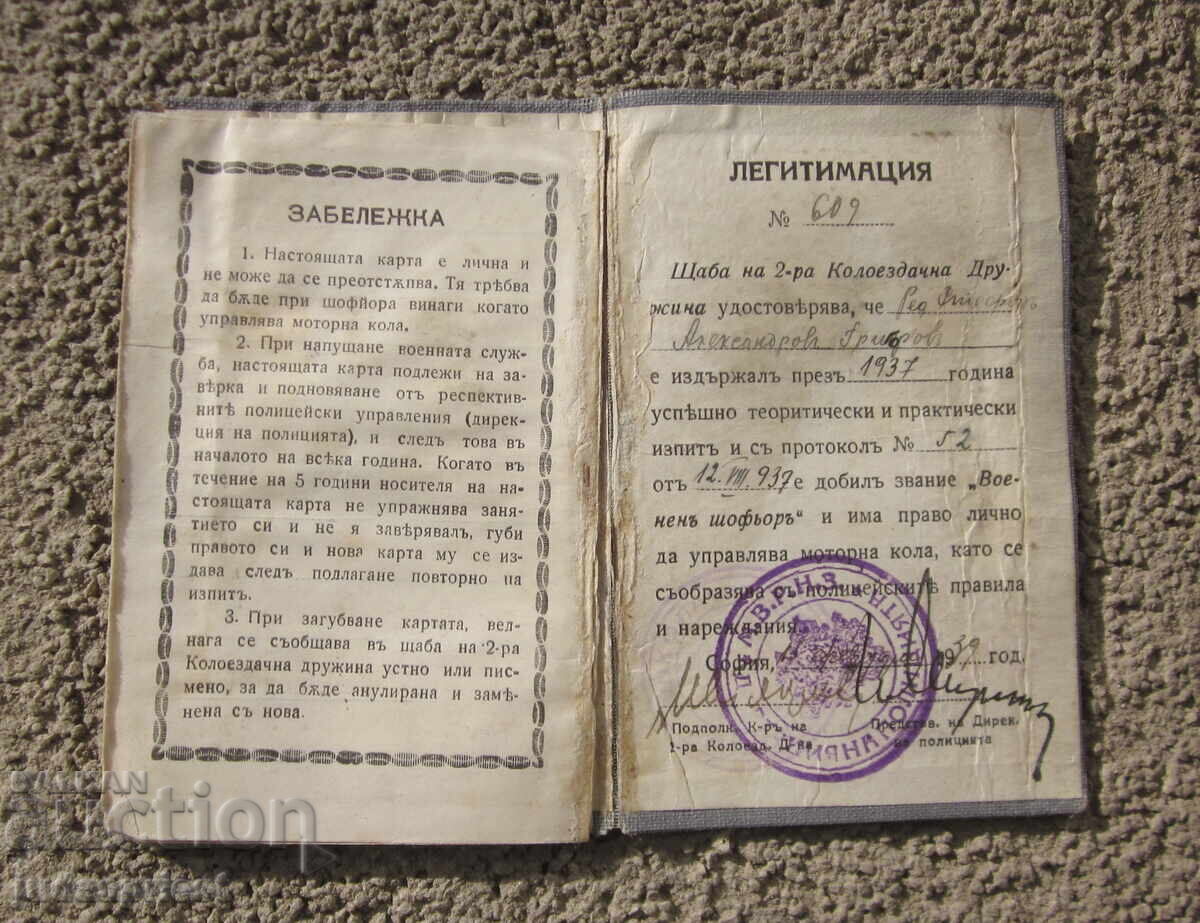 ЗАБЕЛЕЖКА
1. Настоящата карта е лична и
не може да се преотстѫпва. Тя трѣбва
да бѫде при шофйора винаги когато
управлява моторна кола.
2. При напущане военната служ-
ба, настоящата карта подлежи на за-
верка и подновяване отъ респектив-
нитѣ полицейски управления (дирек-
ция на полицията), и следъ това въ
началото на всѣка година. Когато въ
течение на 5 години носителя на на-
стоящата карта не упражнява заня-
тието си и не я завѣрявалъ, губи
правото си и нова карта му се из-
дава следъ подлагане повторно на
изпитъ.
3. При загубване картата, вед-
нага се съобщава въ щаба на 2-ра
Колоездачна дружина устно или пис-
мено, за да бѫде анулирана и замѣ-
нена съ нова.
ЛЕГИТИМАЦИЯ
№ 609
Щаба на 2-ра Колоездачна Дру-
жина удостовѣрява, че Ред.
Александровъ
е издържалъ презъ 1937 година
успѣшно теоритически и практически
изпитъ и съ протоколъ № 52
отъ 12.VIII.937 е добилъ звание „Вое-
ненъ шофьоръ" и има право лично
да управлява моторна кола, като се
съобразява съ полицейскитѣ правила
и нареждания.
София, 1939 год.
Подполк. К-ръ на
2-ра Колоезд. Д-на
Представ. на Дирек.
на полицията
М.В.Р.Н.З.
BALKAN
auction